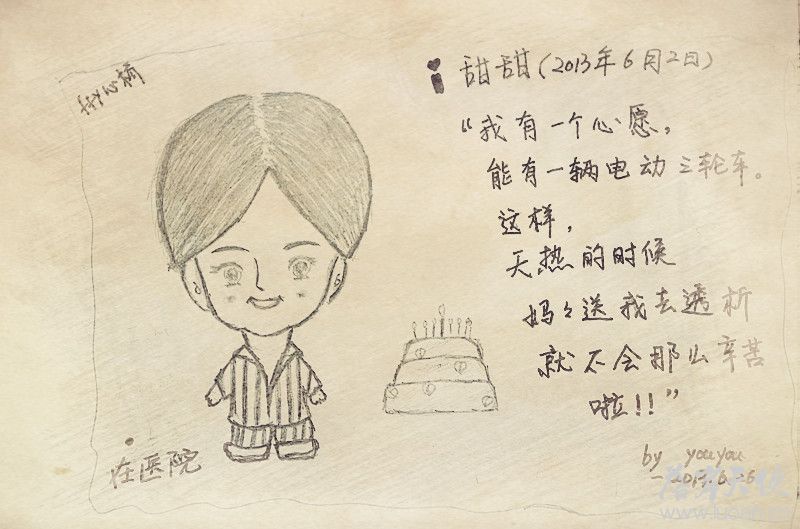 甜甜(2013年6月2日)
“我有一个心愿,
能有一辆电动三轮车。
这样,
天热的时候
妈々送我去透析
就不会那么辛苦
啦!!”
by youyou
在医院